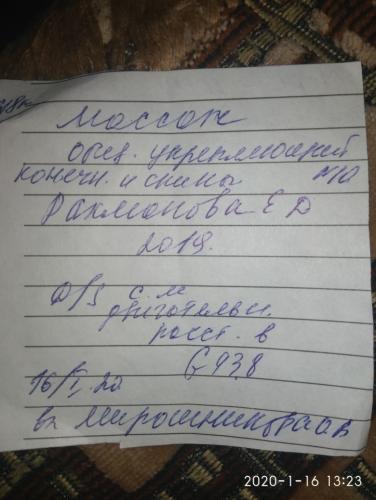 Массаж
общ. укрепляющий
конечн. и спины №10
Рахмонова Е Д
2019.
D/S с-м
двигательн.
расст. в
G93.8
16/I.20
вр Мирошникова
2020-1-16 13:23